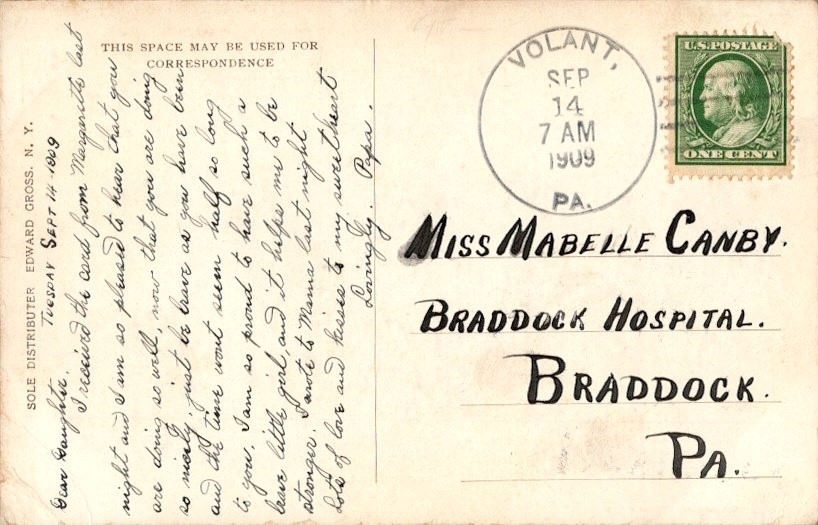 THIS SPACE MAY BE USED FOR
CORRESPONDENCE
SOLE DISTRIBUTER EDWARD GROSS. N. Y.
TUESDAY SEPT 14-1909
Dear Daughter.
I received the card from Margarette last
night and I am so pleased to hear that you
are doing so well, now that you are doing
so nicely, just be brave as you have been
and the time wont seem half so long
to you, I am so proud to have such a
brave little girl, and it helps me to be
stronger. I wrote to Mama last night
Lots of love and kisses to my sweetheart
Lovingly. Papa.
VOLANT,
SEP
14
7 AM
1909
PA.
U.S. POSTAGE
ONE CENT
MISS MABELLE CANBY.
BRADDOCK HOSPITAL.
BRADDOCK.
PA.